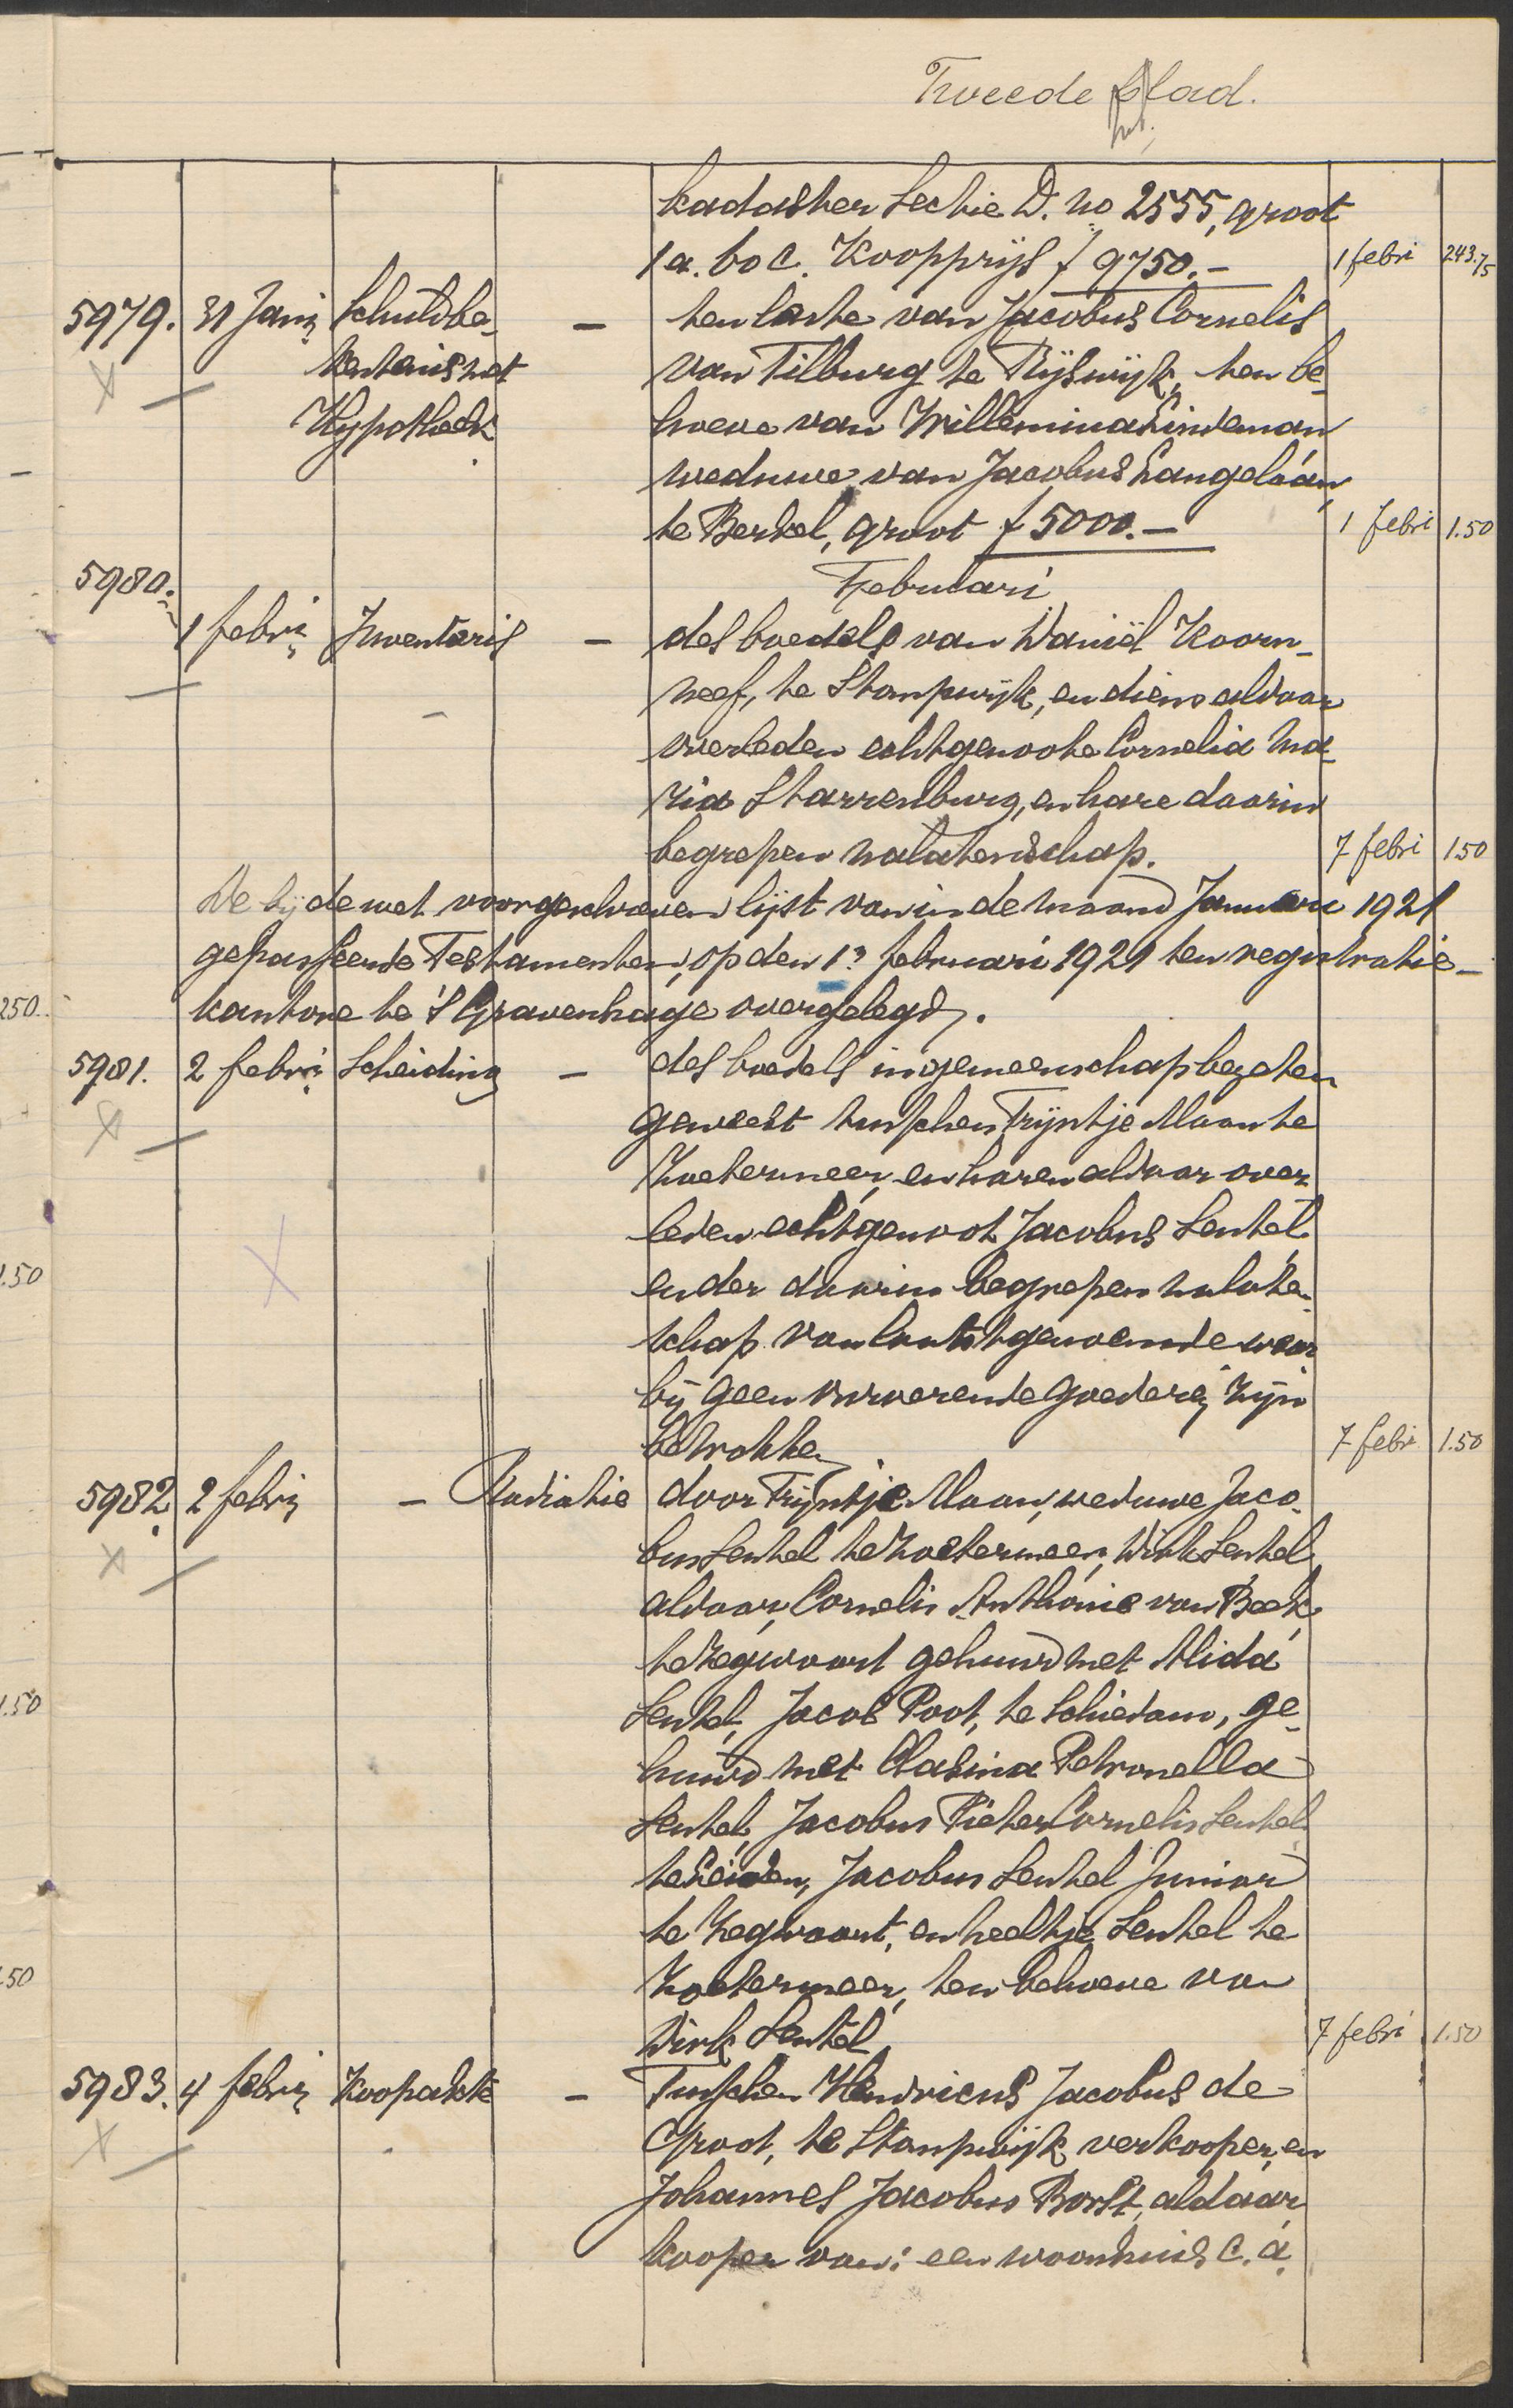 Tweede blad.
kadaster Sectie D. no 2555, groot
1 a. 60 c. Koopprijs f 9750.— 1 febri 243.75
5979. 31 Jani Schuldbe- — ten laste van Jacobus Cornelis
kentenis met van Tilburg te Rijswijk, ten be-
Hypotheek hoeve van Willemina Lindeman
weduwe van Jacobus Langelaan,
te Berkel, groot f 5000.— 1 febri 1.50
Februari
5980. 1 febri Inventaris — des boedels van Daniël Koorn-
neef, te Stompwijk, en diens aldaar
overleden echtgenoote Cornelia Ma-
ria Starrenburg, en hare daarin
begrepen nalatenschap. 7 febri 1.50
De bij de wet voorgeschreven lijst van in de maand Januari 1921
gepasseerde Testamenten, op den 1n februari 1921 ten registratie-
kantore te 's Gravenhage overgelegd.
5981. 2 febri Scheiding — des boedels in gemeenschap bezeten
geweest tusschen Trijntje Maan te
Zoetermeer, en haren aldaar over
leden echtgenoot Jacobus Sentel
en der daarin begrepen nalaten-
schap van laatstgenoemde waar
bij geen onroerende goederen zijn
betrokken 7 febri 1.50
5982. 2 febri — Radiatie door Trijntje Maan, weduwe Jaco-
bus Sentel te Zoetermeer, Dirk Sentel
aldaar, Cornelis Anthonie van Beek,
te Zegwaart gehuwd met Alida
Sentel, Jacob Poot, te Schiedam, ge-
huwd met Clasina Petronella
Sentel, Jacobus Pieter Cornelis Sentel
te Leiden, Jacobus Sentel Junior
te Zegwaart, en Neeltje Sentel te
Zoetermeer, ten behoeve van
Dirk Sentel 7 febri 1.50
5983. 4 febri Koopakte — Tusschen Hendricus Jacobus de
Groot, te Stompwijk, verkooper, en
Johannes Jacobus Borst, aldaar,
kooper van: een woonhuis c.a.
250.
1.50
1.50
.50